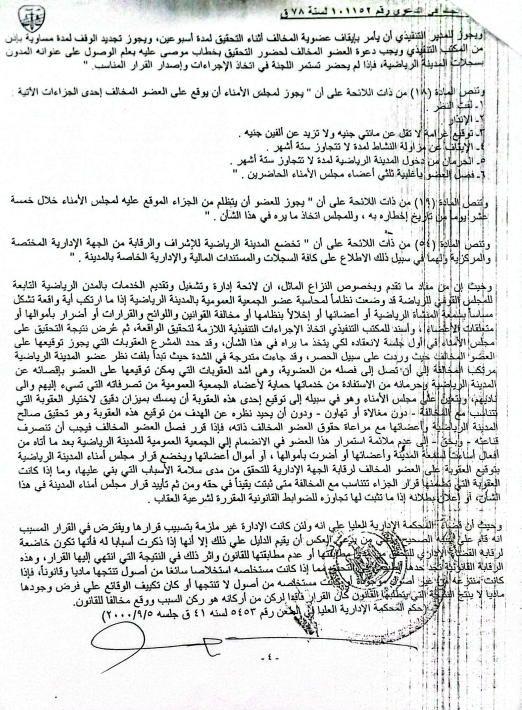 الدعوى رقم ١٠١١٥٢ لسنة ٧٨ ق
ويجوز للمدير التنفيذي أن يأمر بإيقاف عضوية المخالف أثناء التحقيق لمدة أسبوعين، ويجوز تجديد الوقف لمدة مساوية بإذن
من المكتب التنفيذي ويجب دعوة العضو المخالف لحضور التحقيق بخطاب موصى عليه بعلم الوصول على عنوانه المدون
بسجلات المدينة الرياضية، فإذا لم يحضر تستمر اللجنة في اتخاذ الإجراءات وإصدار القرار المناسب . "
وتنص المادة (١٨) من ذات اللائحة على أن " يجوز لمجلس الأمناء أن يوقع على العضو المخالف إحدى الجزاءات الآتية :
١- لفت النظر
٢- الإنذار
٣- توقيع غرامة لا تقل عن مائتي جنيه ولا تزيد عن ألفين جنيه .
٤- الإيقاف عن مزاولة النشاط لمدة لا تتجاوز ستة أشهر .
٥- الحرمان من دخول المدينة الرياضية لمدة لا تتجاوز ستة أشهر .
٦- فصل العضو بأغلبية ثلثي أعضاء مجلس الأمناء الحاضرين . "
وتنص المادة (١٩) من ذات اللائحة على أن " يجوز للعضو أن يتظلم من الجزاء الموقع عليه لمجلس الأمناء خلال خمسة
عشر يوما من تاريخ إخطاره به ، وللمجلس اتخاذ ما يره في هذا الشأن . "
وتنص المادة (٥٤) من ذات اللائحة على أن " تخضع المدينة الرياضية للإشراف والرقابة من الجهة الإدارية المختصة
والمركزية ولهما في سبيل ذلك الاطلاع على كافة السجلات والمستندات المالية والإدارية الخاصة بالمدينة . "
وحيث إن من مفاد ما تقدم وبخصوص النزاع الماثل، ان لائحة إدارة وتشغيل وتقديم الخدمات بالمدن الرياضية التابعة
للمجلس القومي للرياضة قد وضعت نظاماً لمحاسبة عضو الجمعية العمومية بالمدينة الرياضية إذا ما ارتكب أية واقعة تشكل
مساساً بسمعة المنشأة الرياضية أو أعضائها أو إخلالاً بنظامها أو مخالفة القوانين واللوائح والقرارات أو أضرار بأموالها أو
متعلقات الأعضاء ، وأسند للمكتب التنفيذي اتخاذ الإجراءات التنفيذية اللازمة لتحقيق الواقعة، ثم عرض نتيجة التحقيق على
مجلس الأمناء في أول جلسة لانعقاده لكي يتخذ ما يراه في هذا الشأن، وقد حدد المشرع العقوبات التي يجوز توقيعها على
العضو المخالف حيث وردت على سبيل الحصر، وقد جاءت متدرجة في الشدة حيث تبدأ بلفت نظر عضو المدينة الرياضية
مرتكب المخالفة إلى أن تصل إلى فصله من العضوية، وهي أشد العقوبات التي يمكن توقيعها على العضو بإقصائه عن
المدينة الرياضية وحرمانه من الاستفادة من خدماتها حماية لأعضاء الجمعية العمومية من تصرفاته التي تسيء إليهم والى
ناديهم، ويتعين على مجلس الأمناء وهو في سبيله إلى توقيع إحدى هذه العقوبة أن يمسك بميزان دقيق لاختيار العقوبة التي
تتناسب مع المخالفة - دون مغالاة أو تهاون - ودون أن يحيد نظره عن الهدف من توقيع هذه العقوبة وهو تحقيق صالح
المدينة الرياضية وأعضائها مع مراعاة حقوق العضو المخالف ذاته، فإذا قرر فصل العضو المخالف فيجب أن تنصرف
قناعته - وبحق - إلى عدم ملائمة استمرار هذا العضو في الانضمام إلي الجمعية العمومية للمدينة الرياضية بعد ما أتاه من
أفعال أساءت لسمعة المدينة وأعضائها أو أضرت بأموالها ، أو أموال أعضائها ويخضع قرار مجلس أمناء المدينة الرياضية
بتوقيع العقوبة على العضو المخالف لرقابة الجهة الإدارية للتحقق من مدى سلامة الأسباب التي بني عليها، وما إذا كانت
العقوبة التي تضمنها قرار الجزاء تتناسب مع المخالفة متى ثبتت يقيناً في حقه ومن ثم تأييد قرار مجلس أمناء المدينة في هذا
الشأن، أو إعلان بطلانه إذا ما ثبتت لها تجاوزه للضوابط القانونية المقررة لشرعية العقاب .
وحيث أن قضاء المحكمة الإدارية العليا علي انه ولئن كانت الإدارة غير ملزمة بتسبيب قرارها ويفترض في القرار المسبب
انه قام على سببه الصحيح من يزعم العكس أن يقيم الدليل علي ذلك إلا أنها إذا ذكرت أسبابا له فأنها تكون خاضعة
لرقابة القضاء الإداري للتحقق من مدى مطابقتها أو عدم مطابقتها للقانون واثر ذلك في النتيجة التي انتهي إليها القرار، وهذه
الرقابة القانونية تجد حدها في التحقق مما إذا كانت مستخلصه استخلاصا سائغا من أصول تنتجها ماديا وقانونيا، فإذا
كانت منتزعة من غير أصول موجودة أو كانت مستخلصه من أصول لا تنتجها أو كان تكييف الوقائع علي فرض وجودها
ماديا لا ينتج النتيجة التي يتطلبها القانون كان القرار فاقدا لركن من أركانه هو ركن السبب ووقع مخالفا للقانون.
(حكم المحكمة الإدارية العليا في الطعن رقم ٥٤٥٣ لسنه ٤١ ق جلسه ٢٠٠٠/٩/٥)
- ٤ -